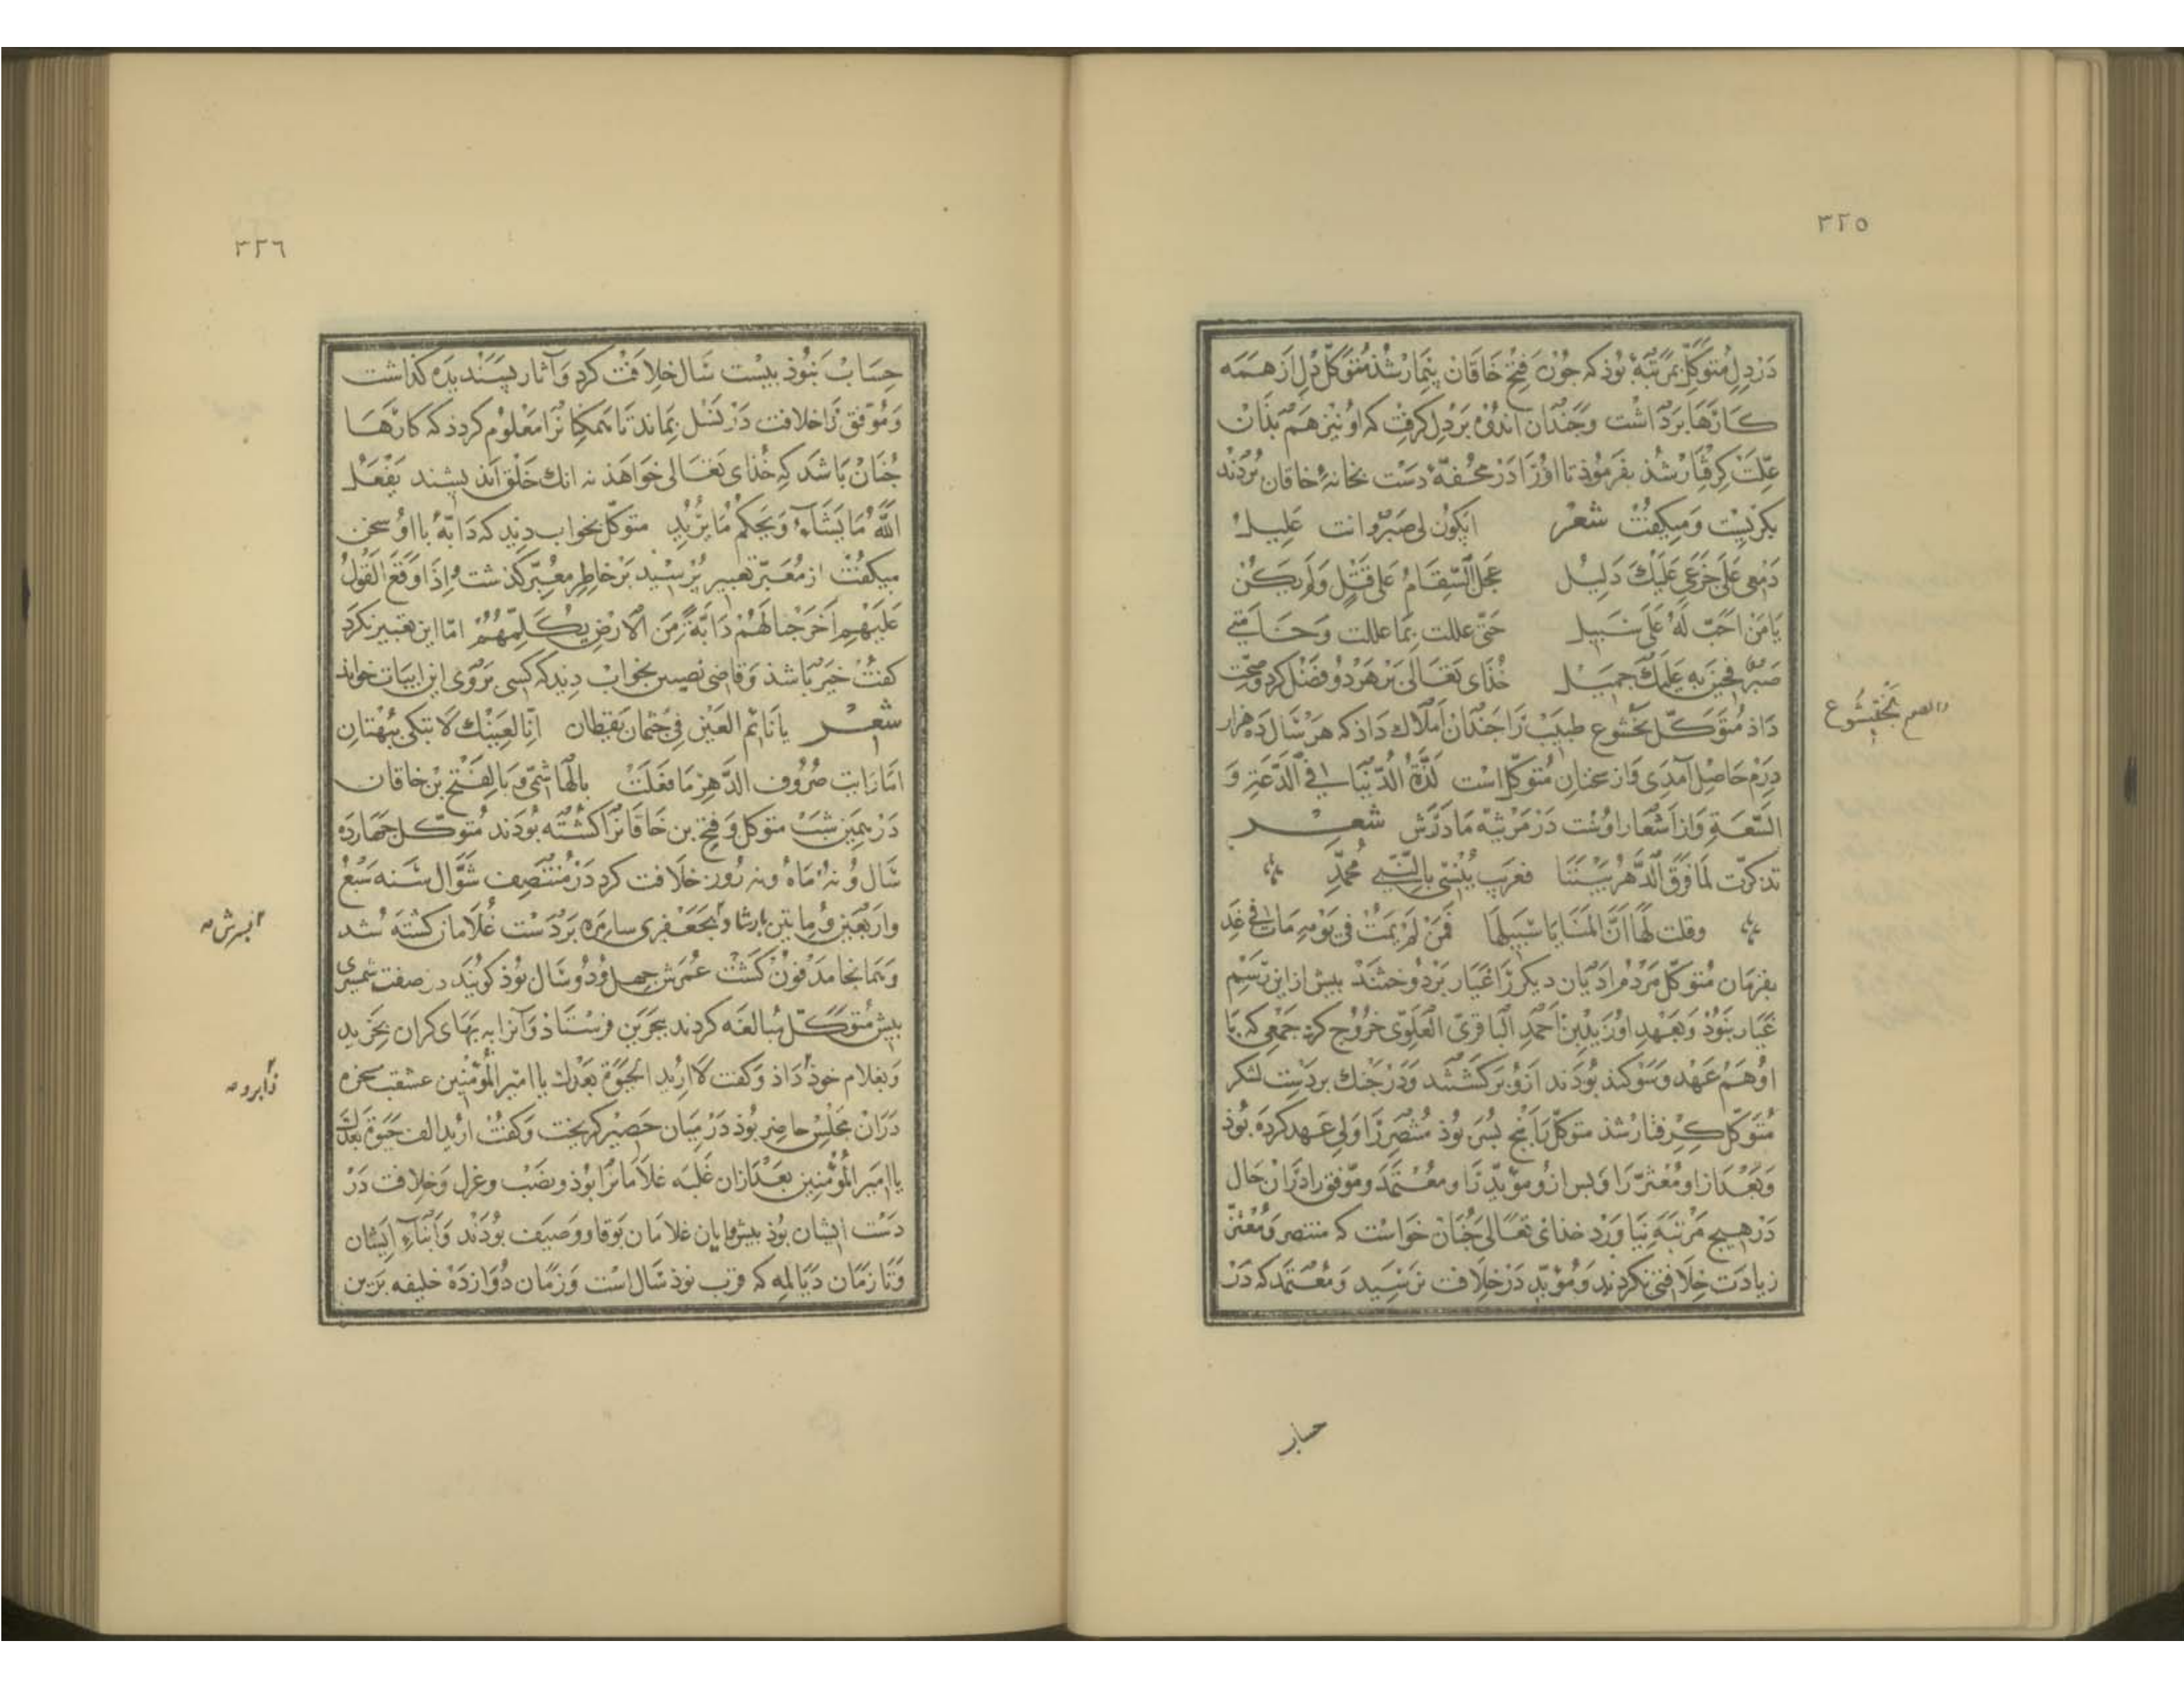 ٣٢٥
در دل متوکل بمرتبهٔ بوذ که جون فتح خاقان بیمار شذ متوکل دل از همه
کارها برداشت و جندان اندوه بر دل کرفت که او نیز هم بذان
علت کرفتار شذ بفرموذ تا اورا در محفهٔ دست بخانهٔ خاقان بردند
بکریست و میکفت شعر ایکون لی صبر وانت علیل
دمعی علی جزعی علیک دلیل عجل السقام علی قتل ولم یکن
یا من احب له علی سبیل حتی عللت بما عللت وخاننی
صبر فحزنی به علیک جمیل خذای تعالی بر هر دو فضل کرد و صحت
داذ متوکل بختشوع طبیب را جندان املاک داذ که هر سال ده هزار
درم حاصل آمدی و از سخنان متوکل است لذة الدنیا فی الدعة و
السعة و از اشعار اوست در مرثیه مادرش شعر
تذکرت لما فرق الدهر بیننا فعزیت نفسی بالنبی محمد
وقلت لها ان المنایا سبیلها فمن لم یمت فی یومه مات فی غد
بفرمان متوکل مردم ادیان دیکر را غیار بردوختند بیش از این رسم
غیار نبوذ و بعهد او زید بن احمد الباقری العلوی خروج کرد جمعی که با
او هم عهد و سوکند بوذند ازو برکشتند و در جنک بر دست لشکر
متوکل کرفتار شذ متوکل را بنج بسر بوذ منتصر را ولی عهد کرده بوذ
و بعد از او معتز را و بس ازو موید را و معتمد و موفق را در آن حال
در هیج مرتبه نیاورد خذای تعالی جنان خواست که منتصر و معتز
زیادت خلافتی نکردند و موید در خلافت نرسید و معتمد که در
والصم بختیشوع
حساب
٣٢٦
حساب نبوذ بیست سال خلافت کرد و آثار بسندیده کذاشت
و موفق را خلافت در نسل بماند تا همکنانرا معلوم کردذ که کارها
جنان باشد که خذای تعالی خواهذ نه انک خلق اندیشند یفعل
الله ما یشاء ویحکم ما یرید متوکل بخواب دید که دابهٔ با او سخن
میکفت از معبر تعبیر برسید بر خاطر معبر کذشت واذا وقع القول
علیهم اخرجنا لهم دابة من الارض یکلمهم اما این تعبیر نکرد
کفت خیر باشذ و قاضی نصیبین بخواب دید که کسی بروی این ابیات خواند
شعر یا نائم العین فی جثمان یقظان انا لعینک لا تبکی بتهتان
اما رایت صروف الدهر ما فعلت بالهاشمی و بالفتح بن خاقان
در همین شب متوکل و فتح بن خاقانرا کشته بوذند متوکل جهارده
سال و نه ماه و نه روز خلافت کرد در منتصف شوال سنه سبع
واربعین و مایتین بارشاد بجعفری سامره بر دست غلامان کشته شد
و همانجا مدفون کشت عمرش جهل و دو سال بوذ کویند در صفت شمشیری
بیش متوکل مبالغه کردند ببحرین فرستاذ و آنرا به بهای کران بخرید
و بغلام خوذ داذ و کفت لا ارید الحیوة بعدک یا امیر المؤمنین عشقب سخره
در آن مجلس حاضر بوذ در میان حصیر کریخت و کفت ارید الف حیوة بعدک
یا امیر المؤمنین بعد از آن غلبه غلامانرا بوذ و نصب و عزل و خلافت در
دست ایشان بوذ بیشوایان غلامان بوقا و وصیف بوذند و ابناء ایشان
و تا زمان دیالمه که قرب نوذ سال است و زمان دوازده خلیفه برین